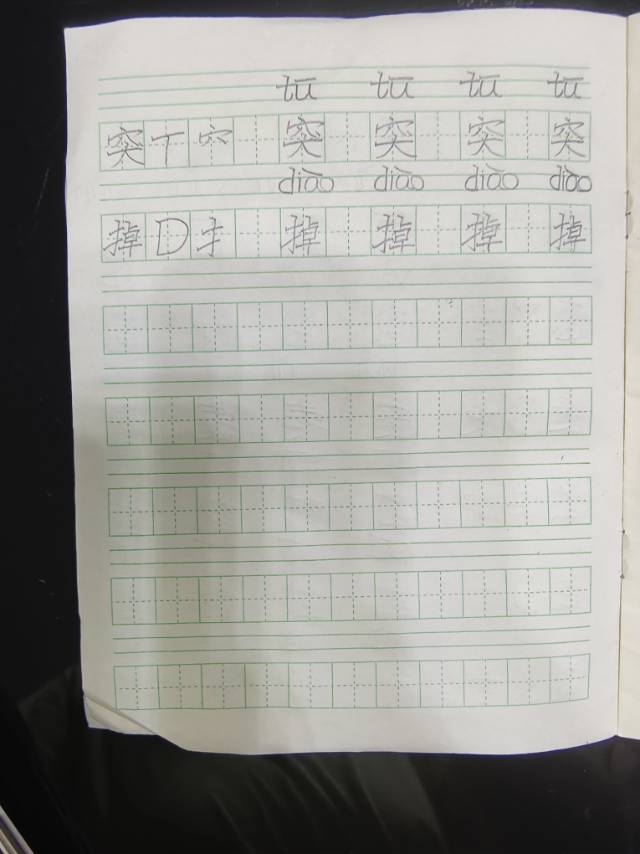 tū tū tū tū
突 T 宀 突 突 突 突
diào diào diào diào
掉 D 扌 掉 掉 掉 掉